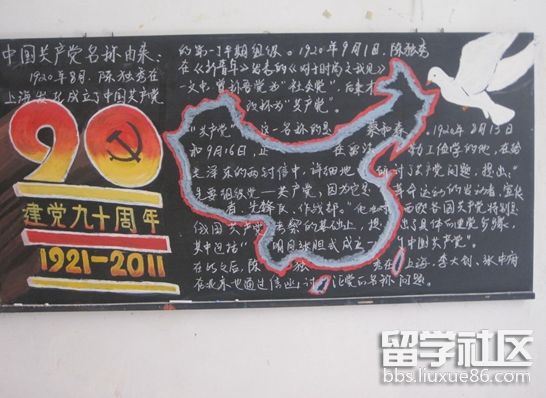 中国共产党名称由来：
1920年8月，陈独秀在
上海发起成立了中国共产党
的第一个早期组织。1920年9月1日，陈独秀
在《新青年》发表的《对于时局之我见》
一文中，曾称吾党为"社会党"，后来才
改称为"共产党"。
"共产党"这一名称的是 蔡和森。1920年8月13日
和9月16日，正在 勤工俭学的他，在给
毛泽东的两封信中，详细地 研讨了共产党问题，提出：
先要组织党—共产党，因为它是 革命运动的发动者、宣传
者、先锋队、作战部。" 西欧各国共产党特别是
俄国共产党 的基础上，提出了具体的建党步骤，
其中包括" 明目张胆正式成立一 中国共产党"。
在此之后，陈独 秀在上海，李大钊、张申府
在北京也通过信 讨 了党的名称问题。
90
建党九十周年
1921-2011
留学社区
bbs.liuxue86.com